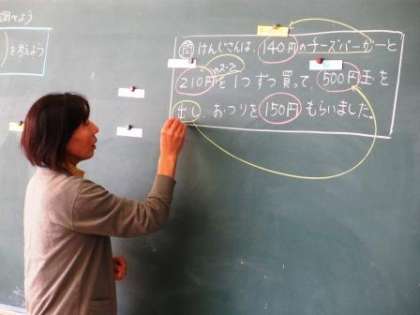 を考えよう
問 けんじさんは、140円のチーズバーガーと
210円を1つずつ買って、500円玉を
出し、おつりを150円もらいました。